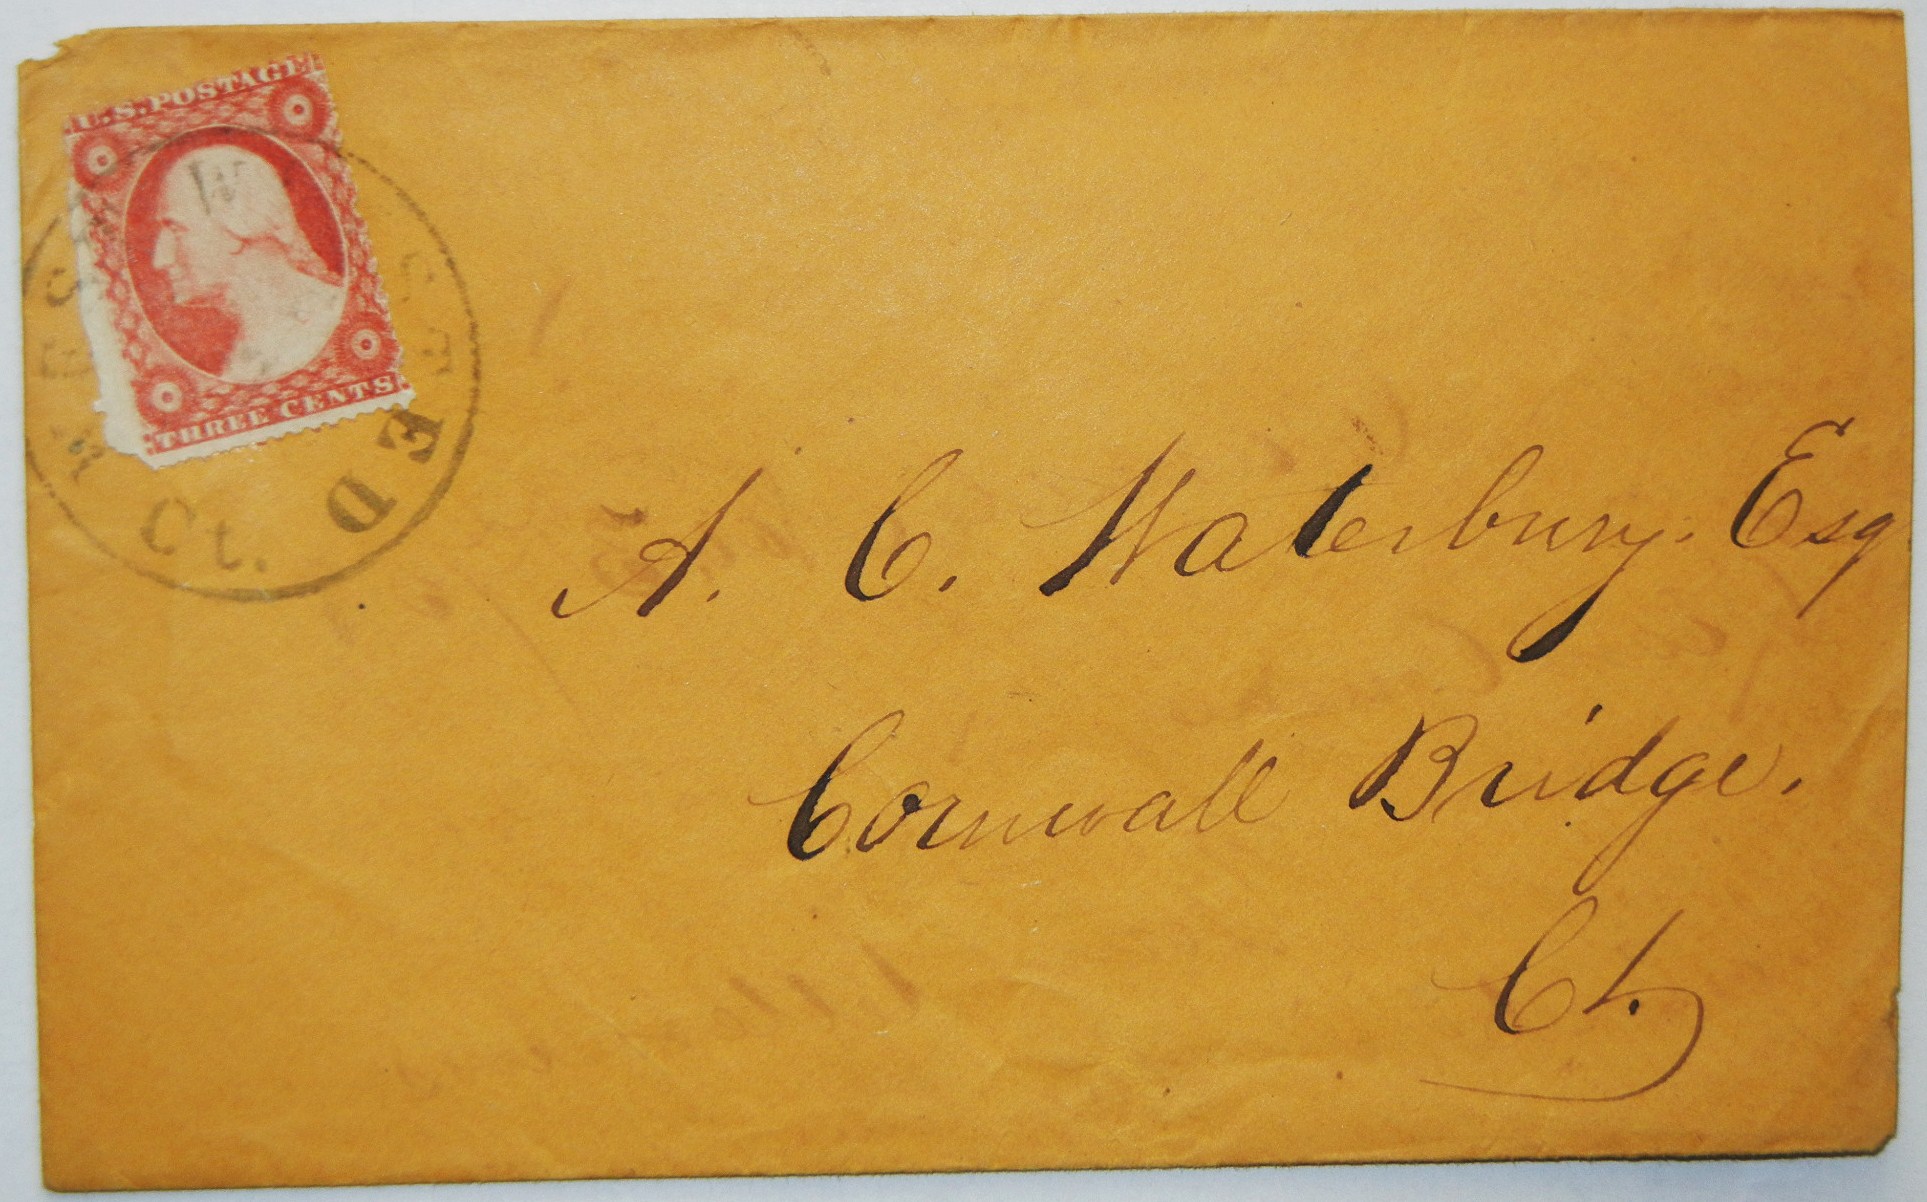 U.S.POSTAGE
THREE CENTS
Ct.
A. C. Waterbury. Esq
Cornwall Bridge.
Ct.